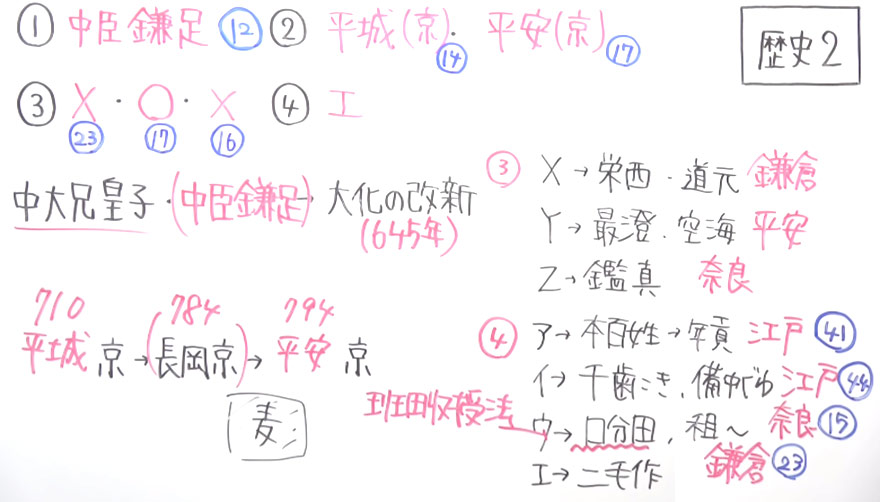 ① 中臣鎌足 ⑫ ② 平城(京)⑭・平安(京)⑰
歴史2
③ X・〇・X ④ エ
㉓ ⑰ ⑯
中大兄皇子・(中臣鎌足)→大化の改新
(645年)
710 784 794
平城京→(長岡京)→平安京
麦
③ X→栄西・道元 鎌倉
Y→最澄・空海 平安
Z→鑑真 奈良
④ ア→本百姓→年貢 江戸 ㊶
イ→千歯こき、備中ぐわ 江戸 ㊹
班田収授法
ウ→口分田、租〜 奈良 ⑮
エ→二毛作 鎌倉 ㉓